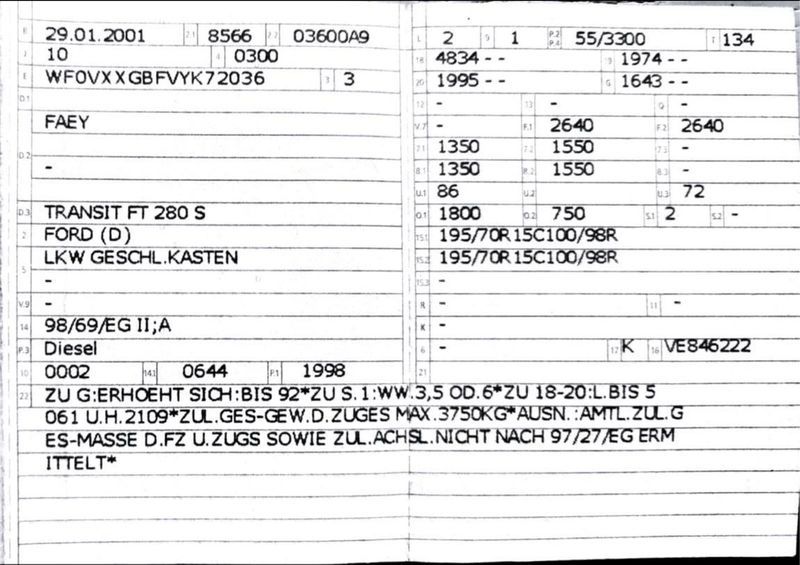 B 29.01.2001 2.1 8566 2.2 03600A9
J 10 4 0300
E WF0VXXGBFVYK72036 3 3
D.1
FAEY
D.2
-
D.3 TRANSIT FT 280 S
2 FORD (D)
5 LKW GESCHL.KASTEN
-
V.9 -
14 98/69/EG II;A
P.3 Diesel
10 0002 14.1 0644 P.1 1998
L 2 9 1 P.2 P.4 55/3300 T 134
18 4834 - - 19 1974 - -
20 1995 - - G 1643 - -
12 - 13 - Q -
V.7 - F.1 2640 F.2 2640
7.1 1350 7.2 1550 7.3 -
8.1 1350 8.2 1550 8.3 -
U.1 86 U.2 U.3 72
O.1 1800 O.2 750 S.1 2 S.2 -
15.1 195/70R15C100/98R
15.2 195/70R15C100/98R
15.3 -
R - 11 -
K -
6 - 17 K 16 VE846222
21
22 ZU G:ERHOEHT SICH:BIS 92*ZU S.1:WW.3,5 OD.6*ZU 18-20:L.BIS 5
061 U.H.2109*ZUL.GES-GEW.D.ZUGES MAX.3750KG*AUSN.:AMTL.ZUL.G
ES-MASSE D.FZ U.ZUGS SOWIE ZUL.ACHSL.NICHT NACH 97/27/EG ERM
ITTELT*